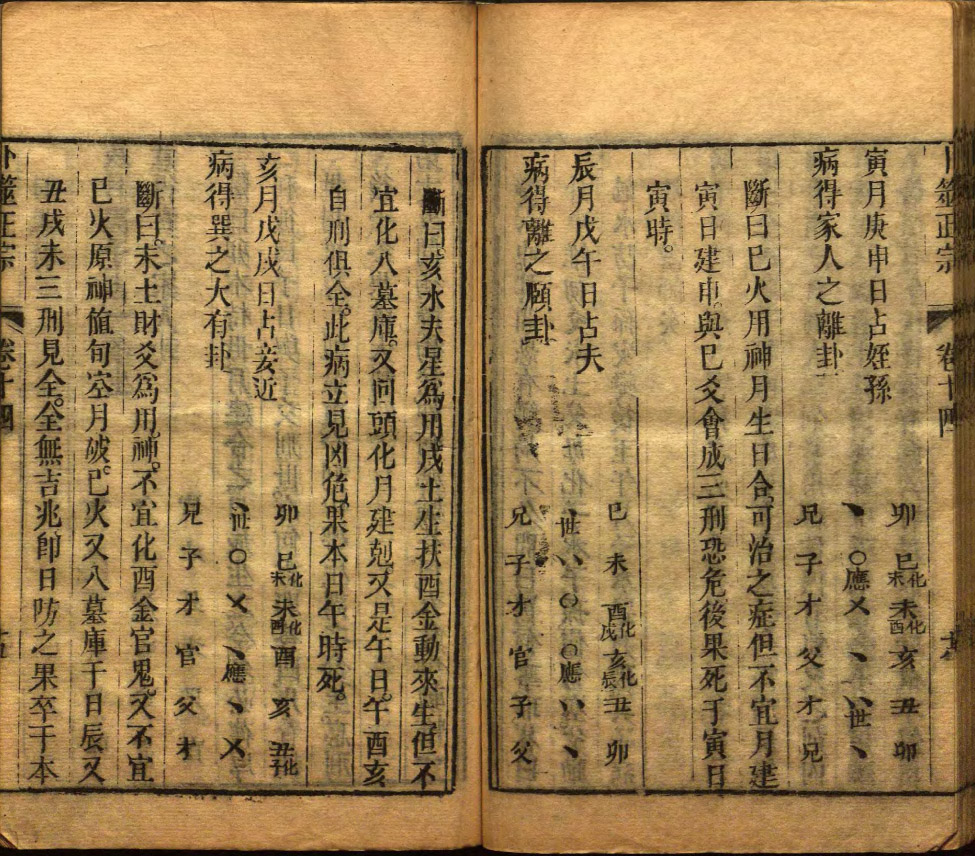 卜筮正宗 卷十四
寅月庚申日占姪孫
病得家人之離卦
卯 巳化未 未化酉 亥 丑 卯
、 ○應 × 、 、、世 、
兄 子 才 父 才 兄
斷曰巳火用神月生日合可治之症但不宜月建
寅日建申與巳爻會成三刑恐危後果死于寅日
寅時。
辰月戊午日占夫
病得離之頤卦
巳 未 酉化戌 亥化辰 丑 卯
世、 、、 ○ ○應 、、 、
兄 子 才 官 子 父
斷曰亥水夫星為用戌土生扶酉金動來生但不
宜化入墓庫又回頭化月建剋又是午日午酉亥
自刑俱全此病立見凶危果本日午時死。
亥月戊戌日占妾近
病得巽之大有卦
卯 巳化未 未化酉 酉 亥 丑化子
、世 ○ × 、應 、 ×
兄 子 才 官 父 才
斷曰未土財爻為用神。不宜化酉金官鬼又不宜
巳火原神值旬空月破。巳火又入墓庫于日辰又
丑戌未三刑見全。全無吉兆即日防之果卒于本
卜筮正宗 卷十四